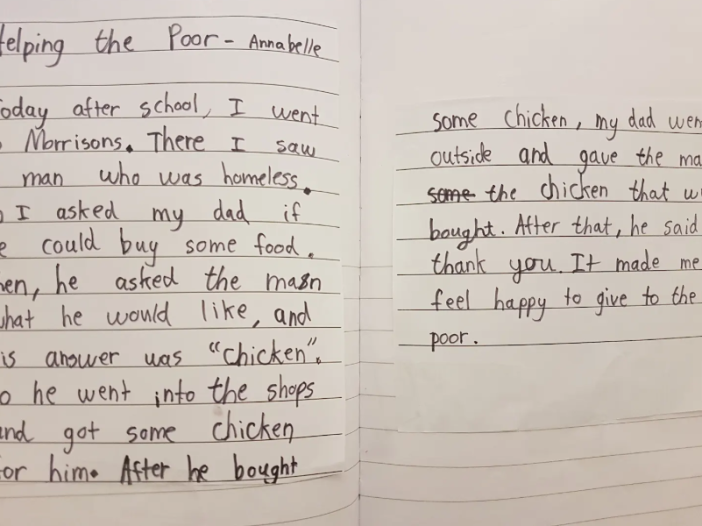 elping the Poor - Annabelle
oday after school, I went
Morrisons. There I saw
man who was homeless.
I asked my dad if
e could buy some food.
hen, he asked the man
hat he would like, and
is answer was "chicken".
o he went into the shops
and got some chicken
for him. After he bought
some chicken, my dad wen
outside and gave the ma
some the chicken that w
bought. After that, he said
thank you. It made me
feel happy to give to the
poor.